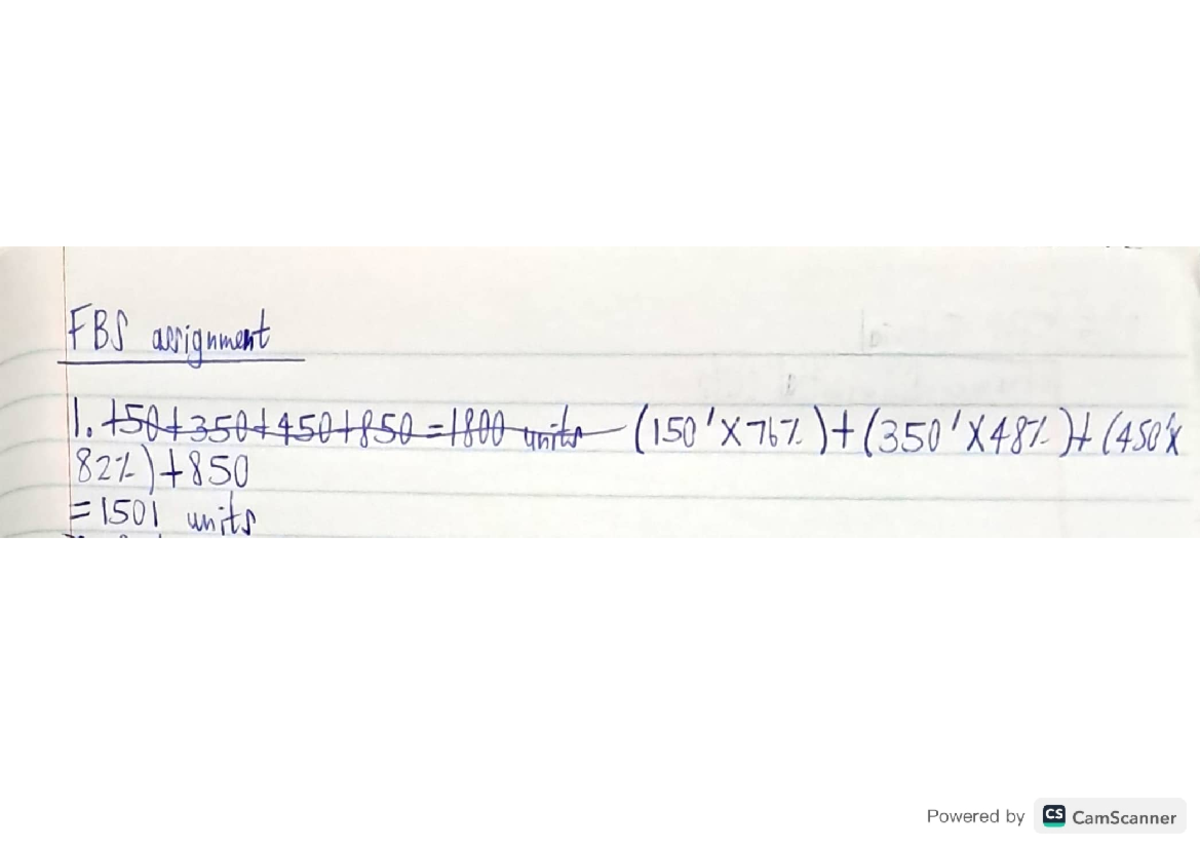 FBS assignment
1. 150+350+450+850=1800 units (150'X76%)+(350'X48%)+(450'X
82%)+850
=1501 units
Powered by CS CamScanner